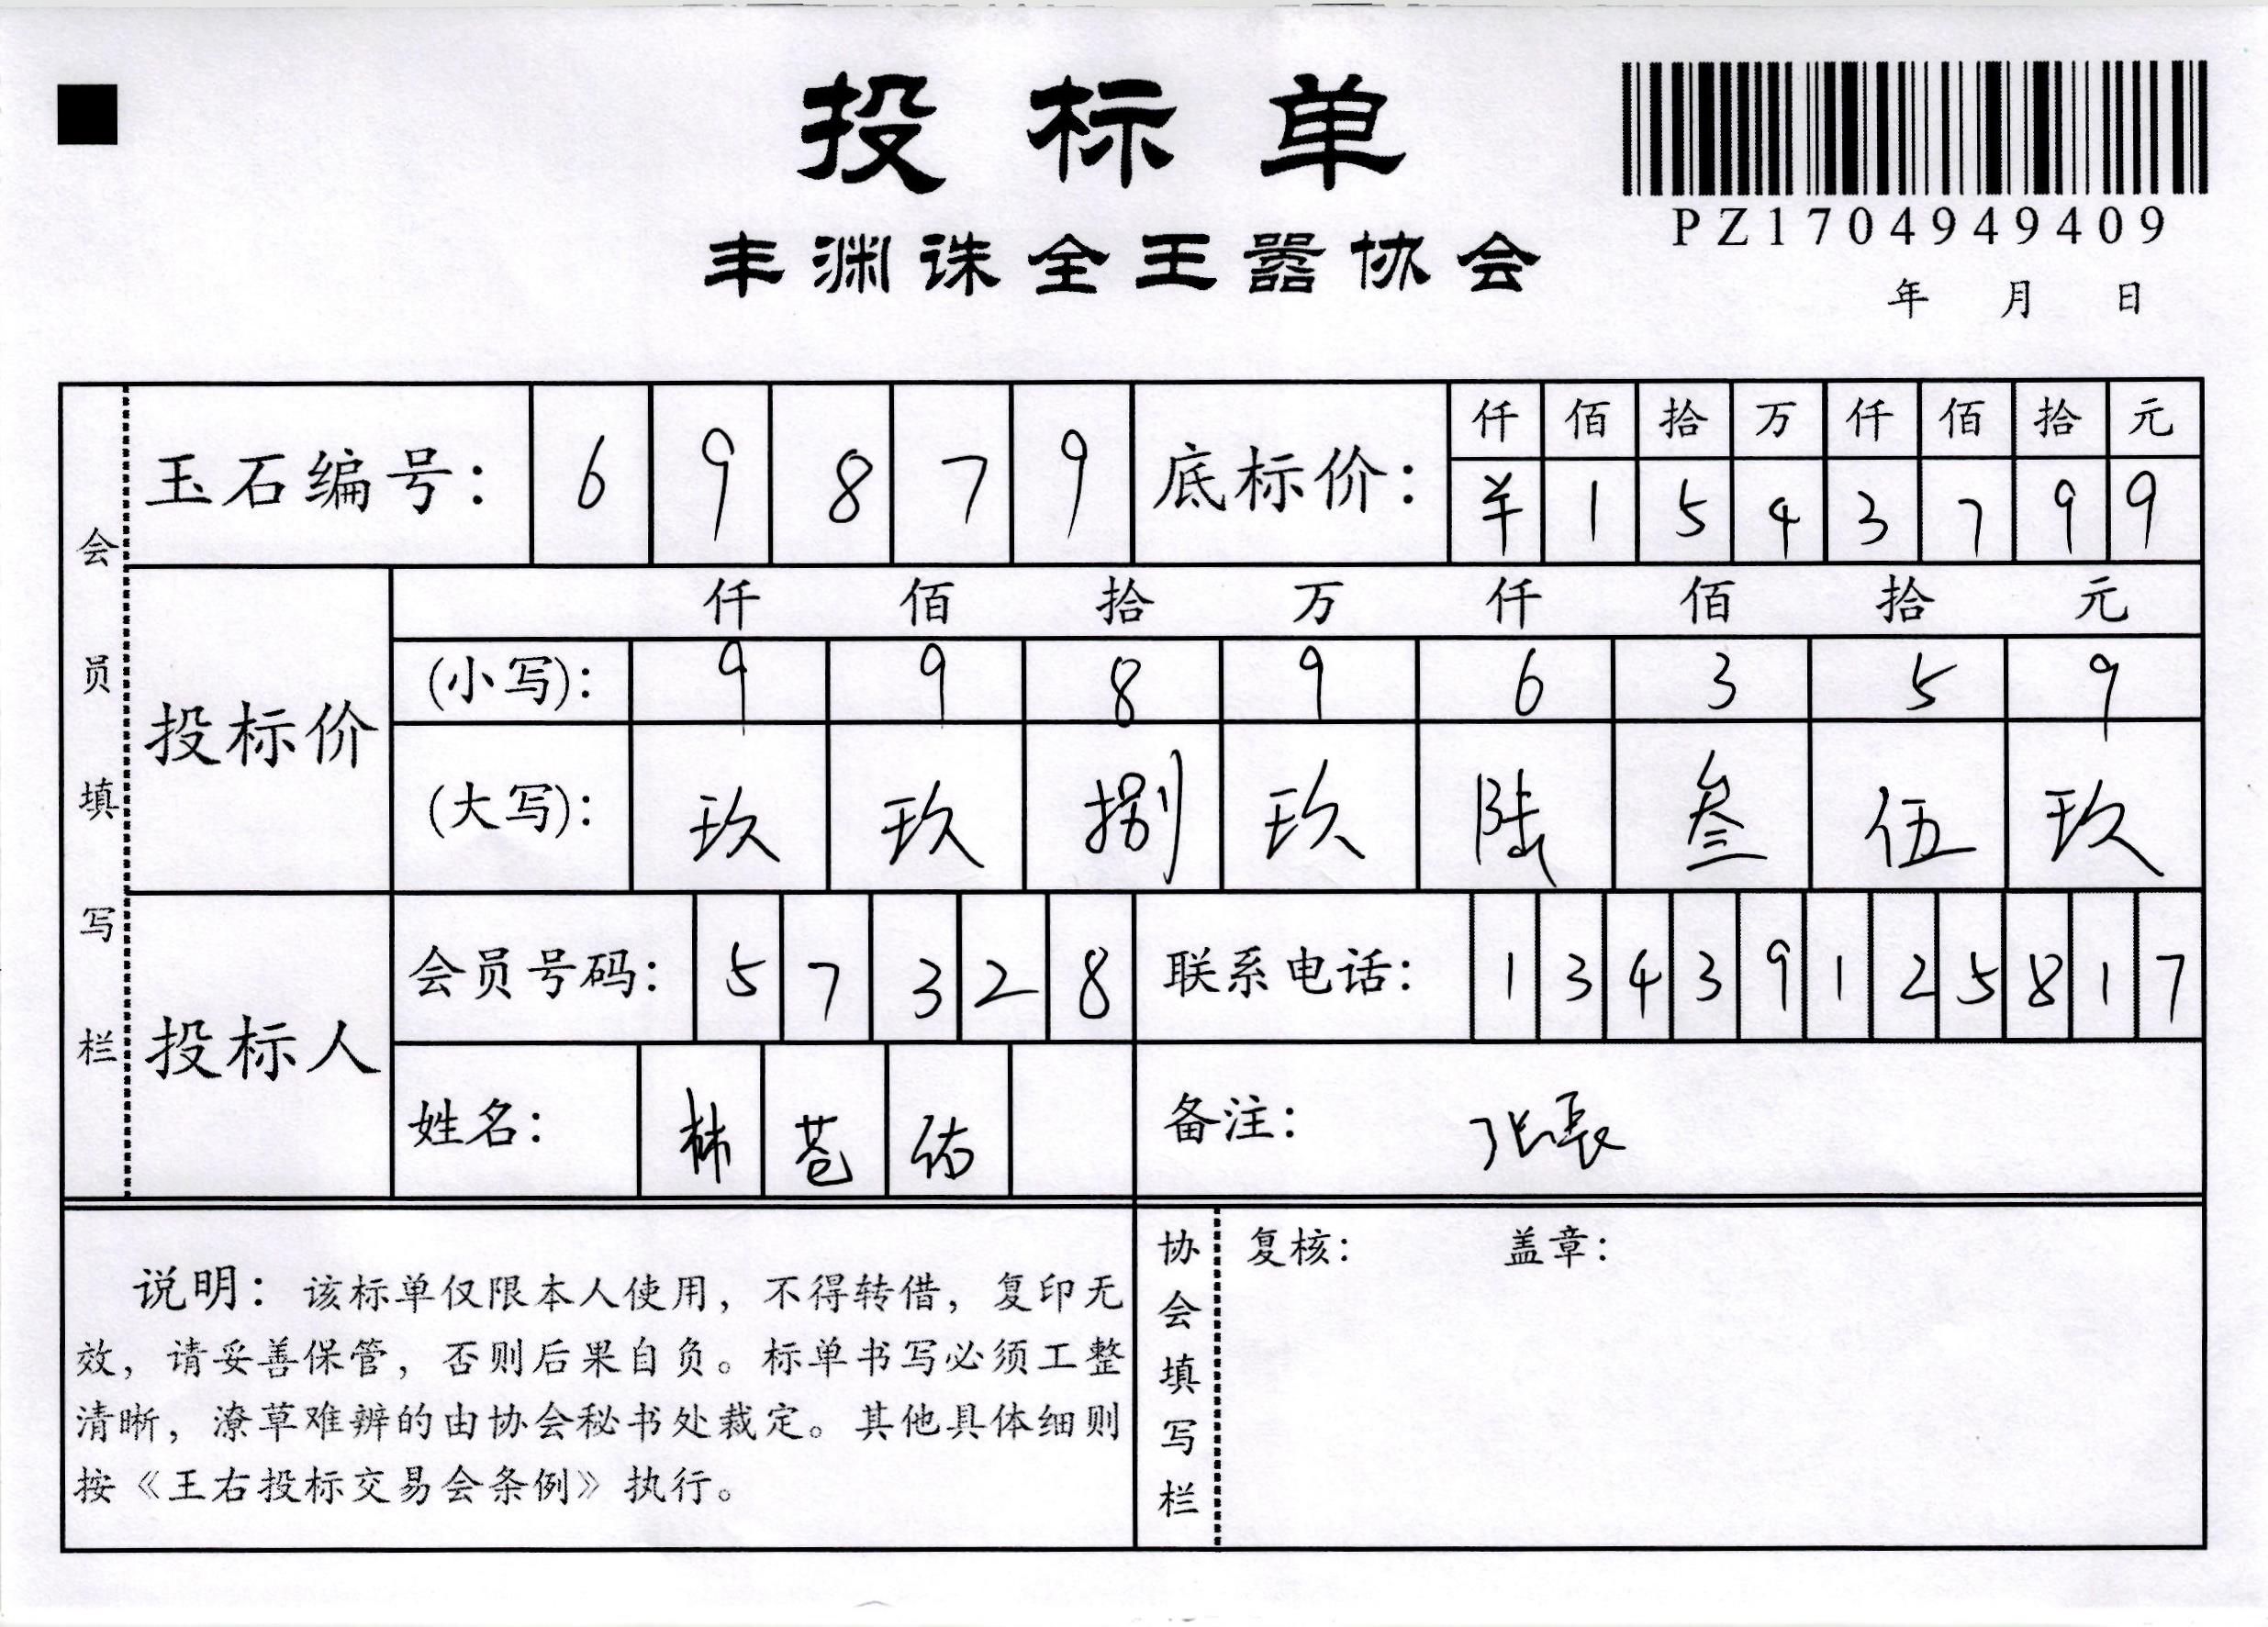 投标单
丰渊诛全王嚣协会
PZ1704949409
年 月 日
会员填写栏
玉石编号: 6 9 8 7 9
底标价: 仟 佰 拾 万 仟 佰 拾 元
¥ 1 5 4 3 7 9 9
投标价
仟 佰 拾 万 仟 佰 拾 元
(小写): 9 9 8 9 6 3 5 9
(大写): 玖 玖 捌 玖 陆 叁 伍 玖
投标人
会员号码: 5 7 3 2 8
联系电话: 1 3 4 3 9 1 2 5 8 1 7
姓名: 林 苍 佑
备注: 张长
说明: 该标单仅限本人使用, 不得转借, 复印无
效, 请妥善保管, 否则后果自负。标单书写必须工整
清晰, 潦草难辨的由协会秘书处裁定。其他具体细则
按《王右投标交易会条例》执行。
协会填写栏
复核: 盖章: